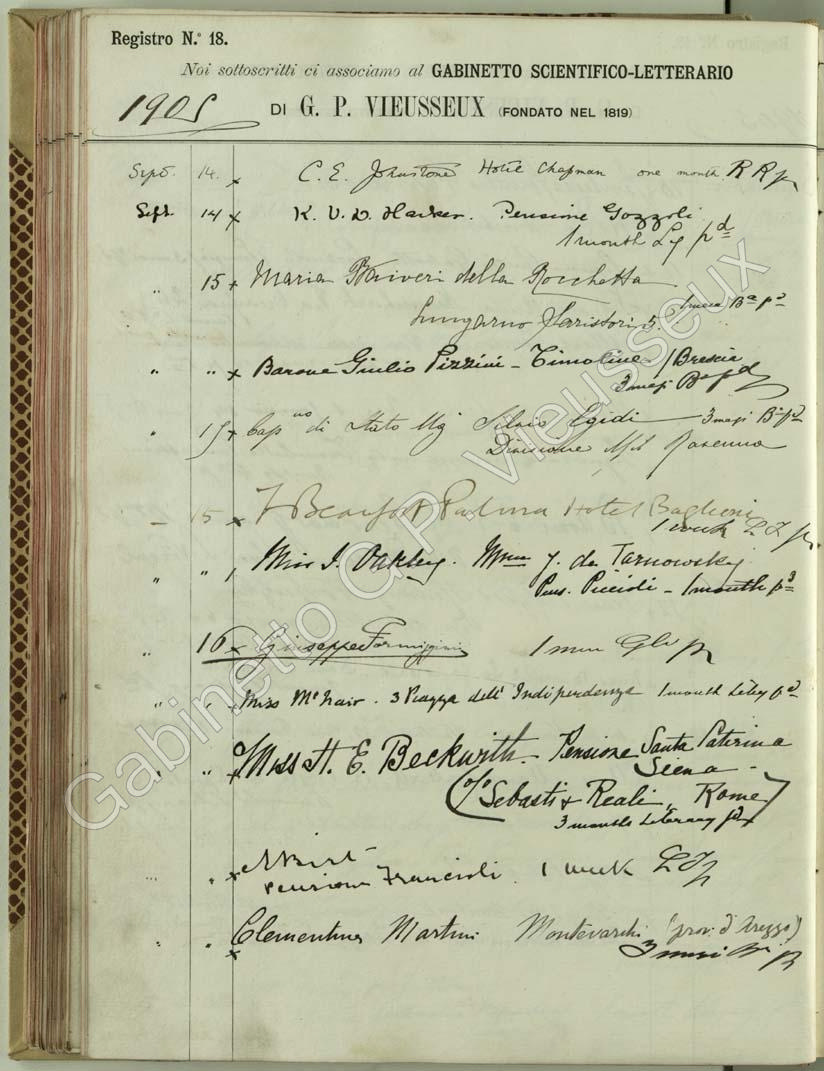 Registro N.º 18.
Noi sottoscritti ci associamo al GABINETTO SCIENTIFICO-LETTERARIO
1905
DI G. P. VIEUSSEUX (FONDATO NEL 1819)
Sept. 14. x C. E. Johnstone Hotel Chapman one month R R
Sept. 14 x K. V. D. Harker. Pensione Gozzoli
1 month Ly pd
" 15 x Maria della Rocchetta
Lungarno Serristori 5.
" " x Barone Giulio Pizzini - Timoline / Brescia
3 mesi Ba pd
" 15 x Capno di Stato Mg Silvio Egidi 3 mesi Ba pd
Divisione Mil Ravenna
- 15 x Beaufort Palma Hotel Baglioni
1 week L
" " Miss J. Oakley. Mme J. de Tarnowsky
Pens. Piccioli - 1 month
" 16 x Giuseppe Formiggini 1
" " Miss McNair. 3 Piazza dell' Indipendenza 1 month Litey pd
" " x Miss H. E. Beckwith - Pensione Santa Caterina
Siena -
(c/o Sebasti & Reali, Rome)
3 months Literary
" x
Pensione Francioli. 1 week
" x Clementina Martini Montevarchi (prov. d'Arezzo)
3 mesi
Gabinetto G.P. Vieusseux